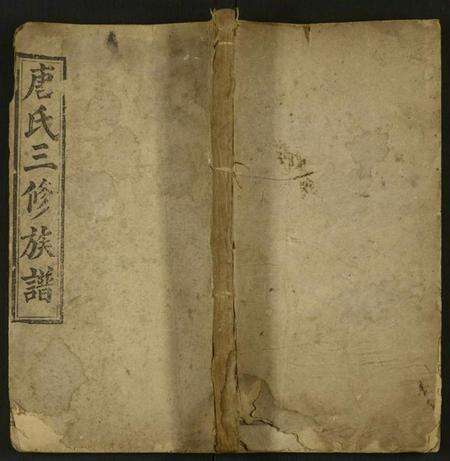 唐氏三修族譜